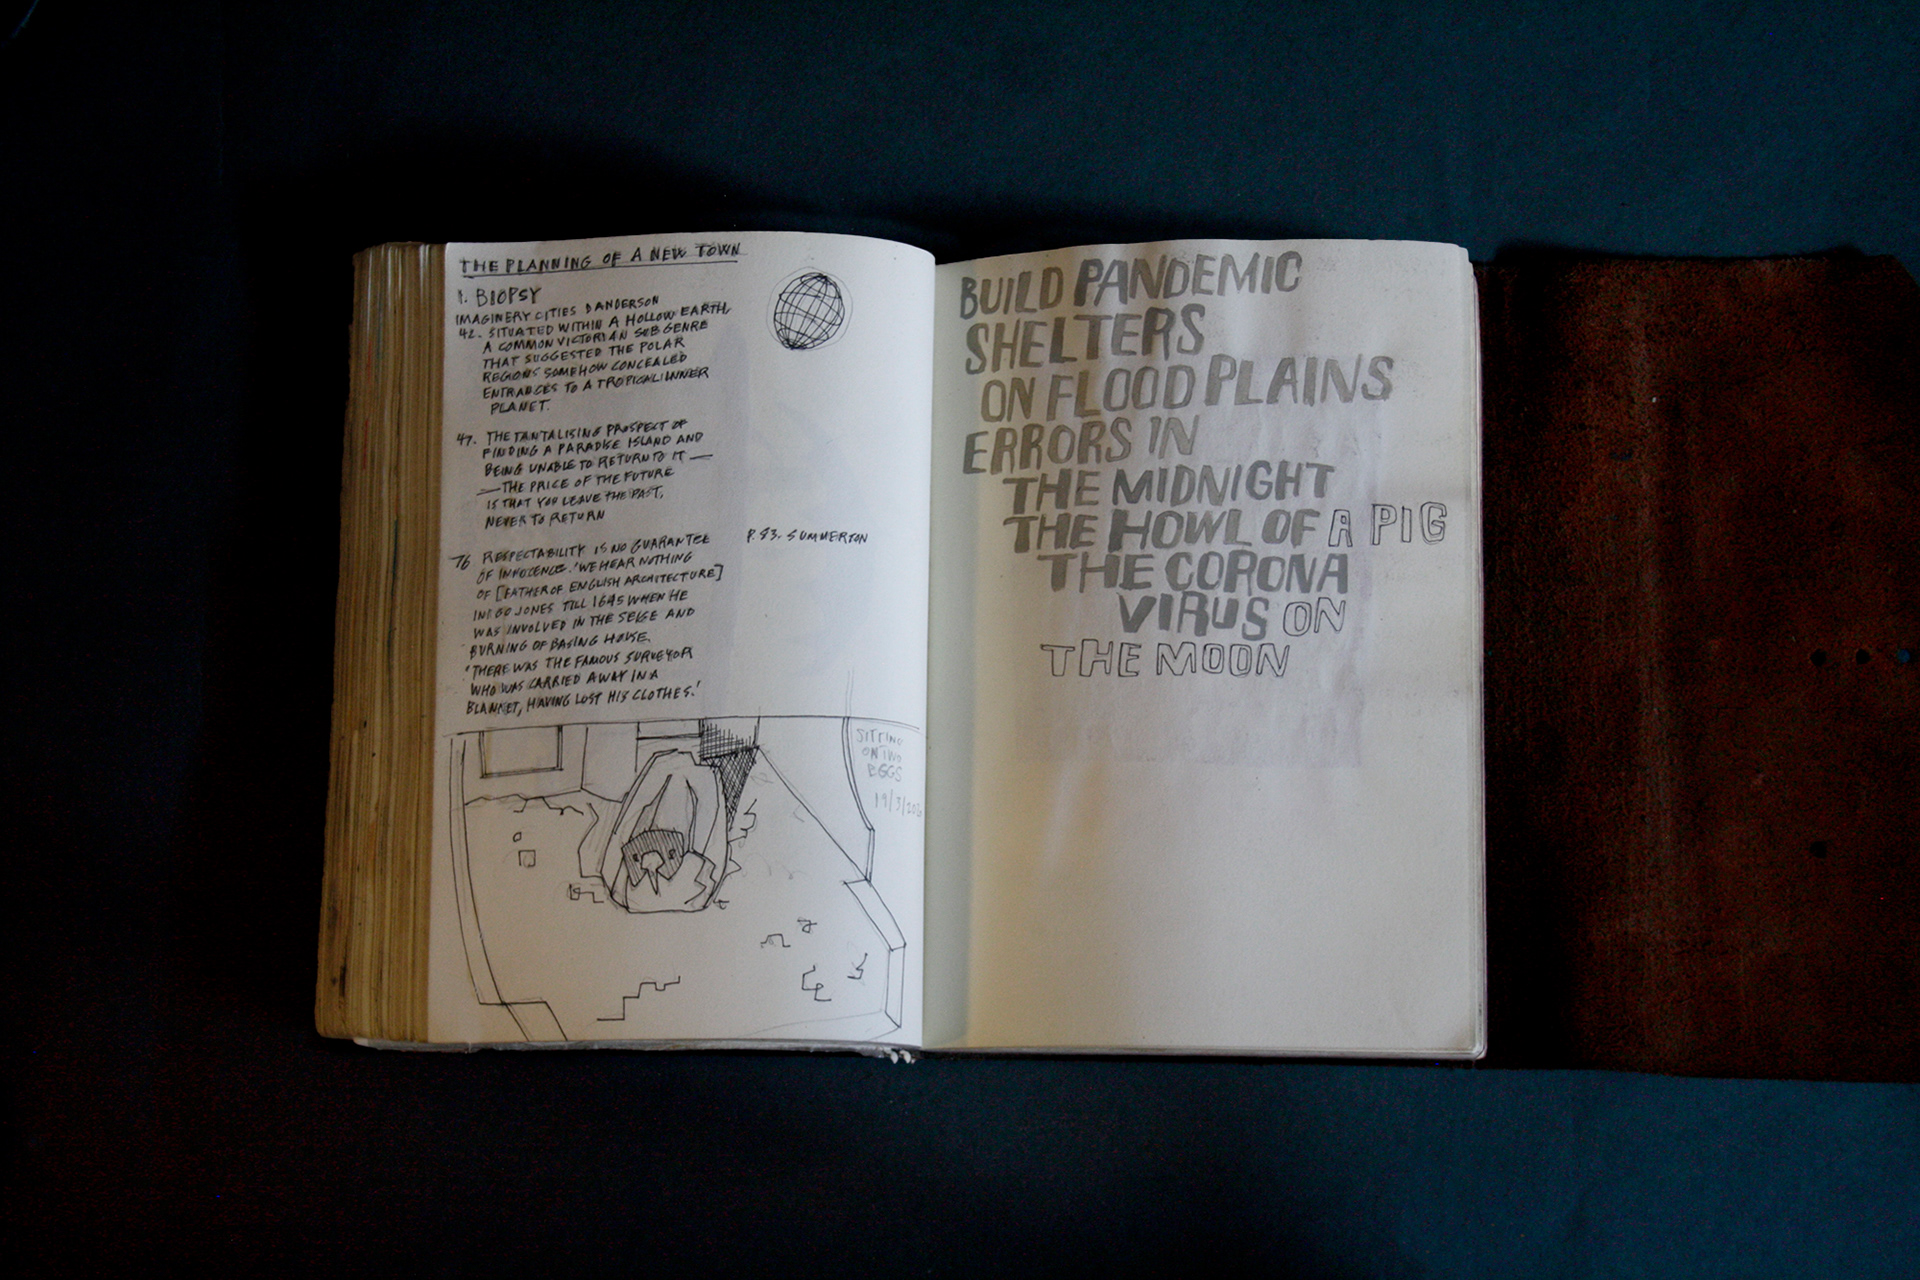 THE PLANNING OF A NEW TOWN
1. BIOPSY
IMAGINERY CITIES D ANDERSON
42. SITUATED WITHIN A HOLLOW EARTH,
A COMMON VICTORIAN SUB GENRE
THAT SUGGESTED THE POLAR
REGIONS SOMEHOW CONCEALED
ENTRANCES TO A TROPICAL INNER
PLANET.
47. THE TANTALISING PROSPECT OF
FINDING A PARADISE ISLAND AND
BEING UNABLE TO RETURN TO IT —
— THE PRICE OF THE FUTURE
IS THAT YOU LEAVE THE PAST,
NEVER TO RETURN
76 RESPECTABILITY IS NO GUARANTEE
OF INNOCENCE. 'WE HEAR NOTHING
OF [FATHER OF ENGLISH ARCHITECTURE]
INIGO JONES TILL 1645 WHEN HE
WAS INVOLVED IN THE SEIGE AND
BURNING OF BASING HOUSE.
'THERE WAS THE FAMOUS SURVEYOR
WHO WAS CARRIED AWAY IN A
BLANKET, HAVING LOST HIS CLOTHES.'
P. 83. SUMMERSON
SITTING
ON TWO
EGGS
19/3/20
BUILD PANDEMIC
SHELTERS
ON FLOOD PLAINS
ERRORS IN
THE MIDNIGHT
THE HOWL OF A PIG
THE CORONA
VIRUS ON
THE MOON